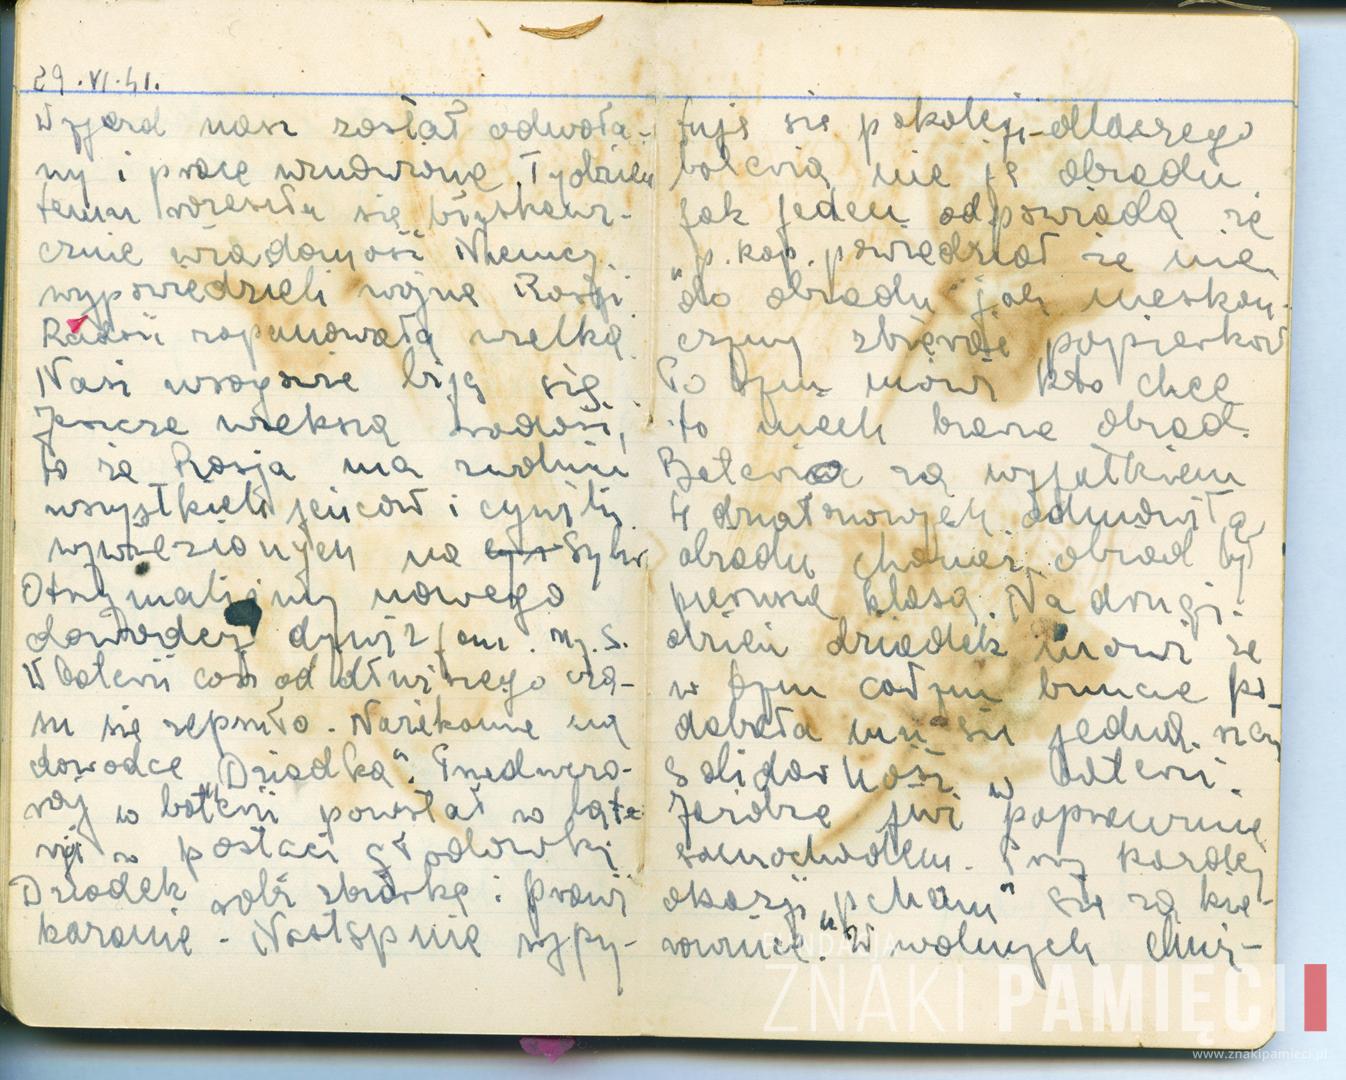 29.VI.41.
Wyjazd nasz został odwoła-
ny i pracę wznowiono. Tydzień
temu rozeszła się błyskawi-
cznie wiadomość Niemcy
wypowiedzieli wojnę Rosji
Radość zapanowała wielka
Nasi wrogowie biją się.
Jeszcze większa radość,
to że Rosja ma zwolnić
wszystkich jeńców i cywili
wywiezionych na Sybir
Otrzymaliśmy nowego
dowódcę dywiz jon. mj. S.
W baterii coś od dłuższego cza-
su się zepsuło. Narzekanie na
dowódcę "Dziadka".
w baterji powstał w
w postaci głodówki
Dziadek robi zbiórkę i prawi
kazanie - Następnie wypy-
tuje się pokoleji - dlaczego
bateria nie je obiadu.
Jak jeden odpowiada że
"p. kap. powiedział że nie
do obiadu jak nieskoń-
czymy zbierać papierków
Po tym mówi kto chce
to niech bierze obiad.
Bateria za wyjątkiem
odmówiła
obiadu chociaż obiad był
pierwszą klasą. Na drugi
dzień dziadek mówi że
w tym całym buncie po
dobała mu się jedna rzecz
Solidarność w baterii.
Jeżdżę już poprawnie
samochodem. Przy każdej
okazji "pcham" się za kie-
rownicę". W wolnych chwi-
FUNDACJA
ZNAKI PAMIĘCI
www.znakipamieci.pl